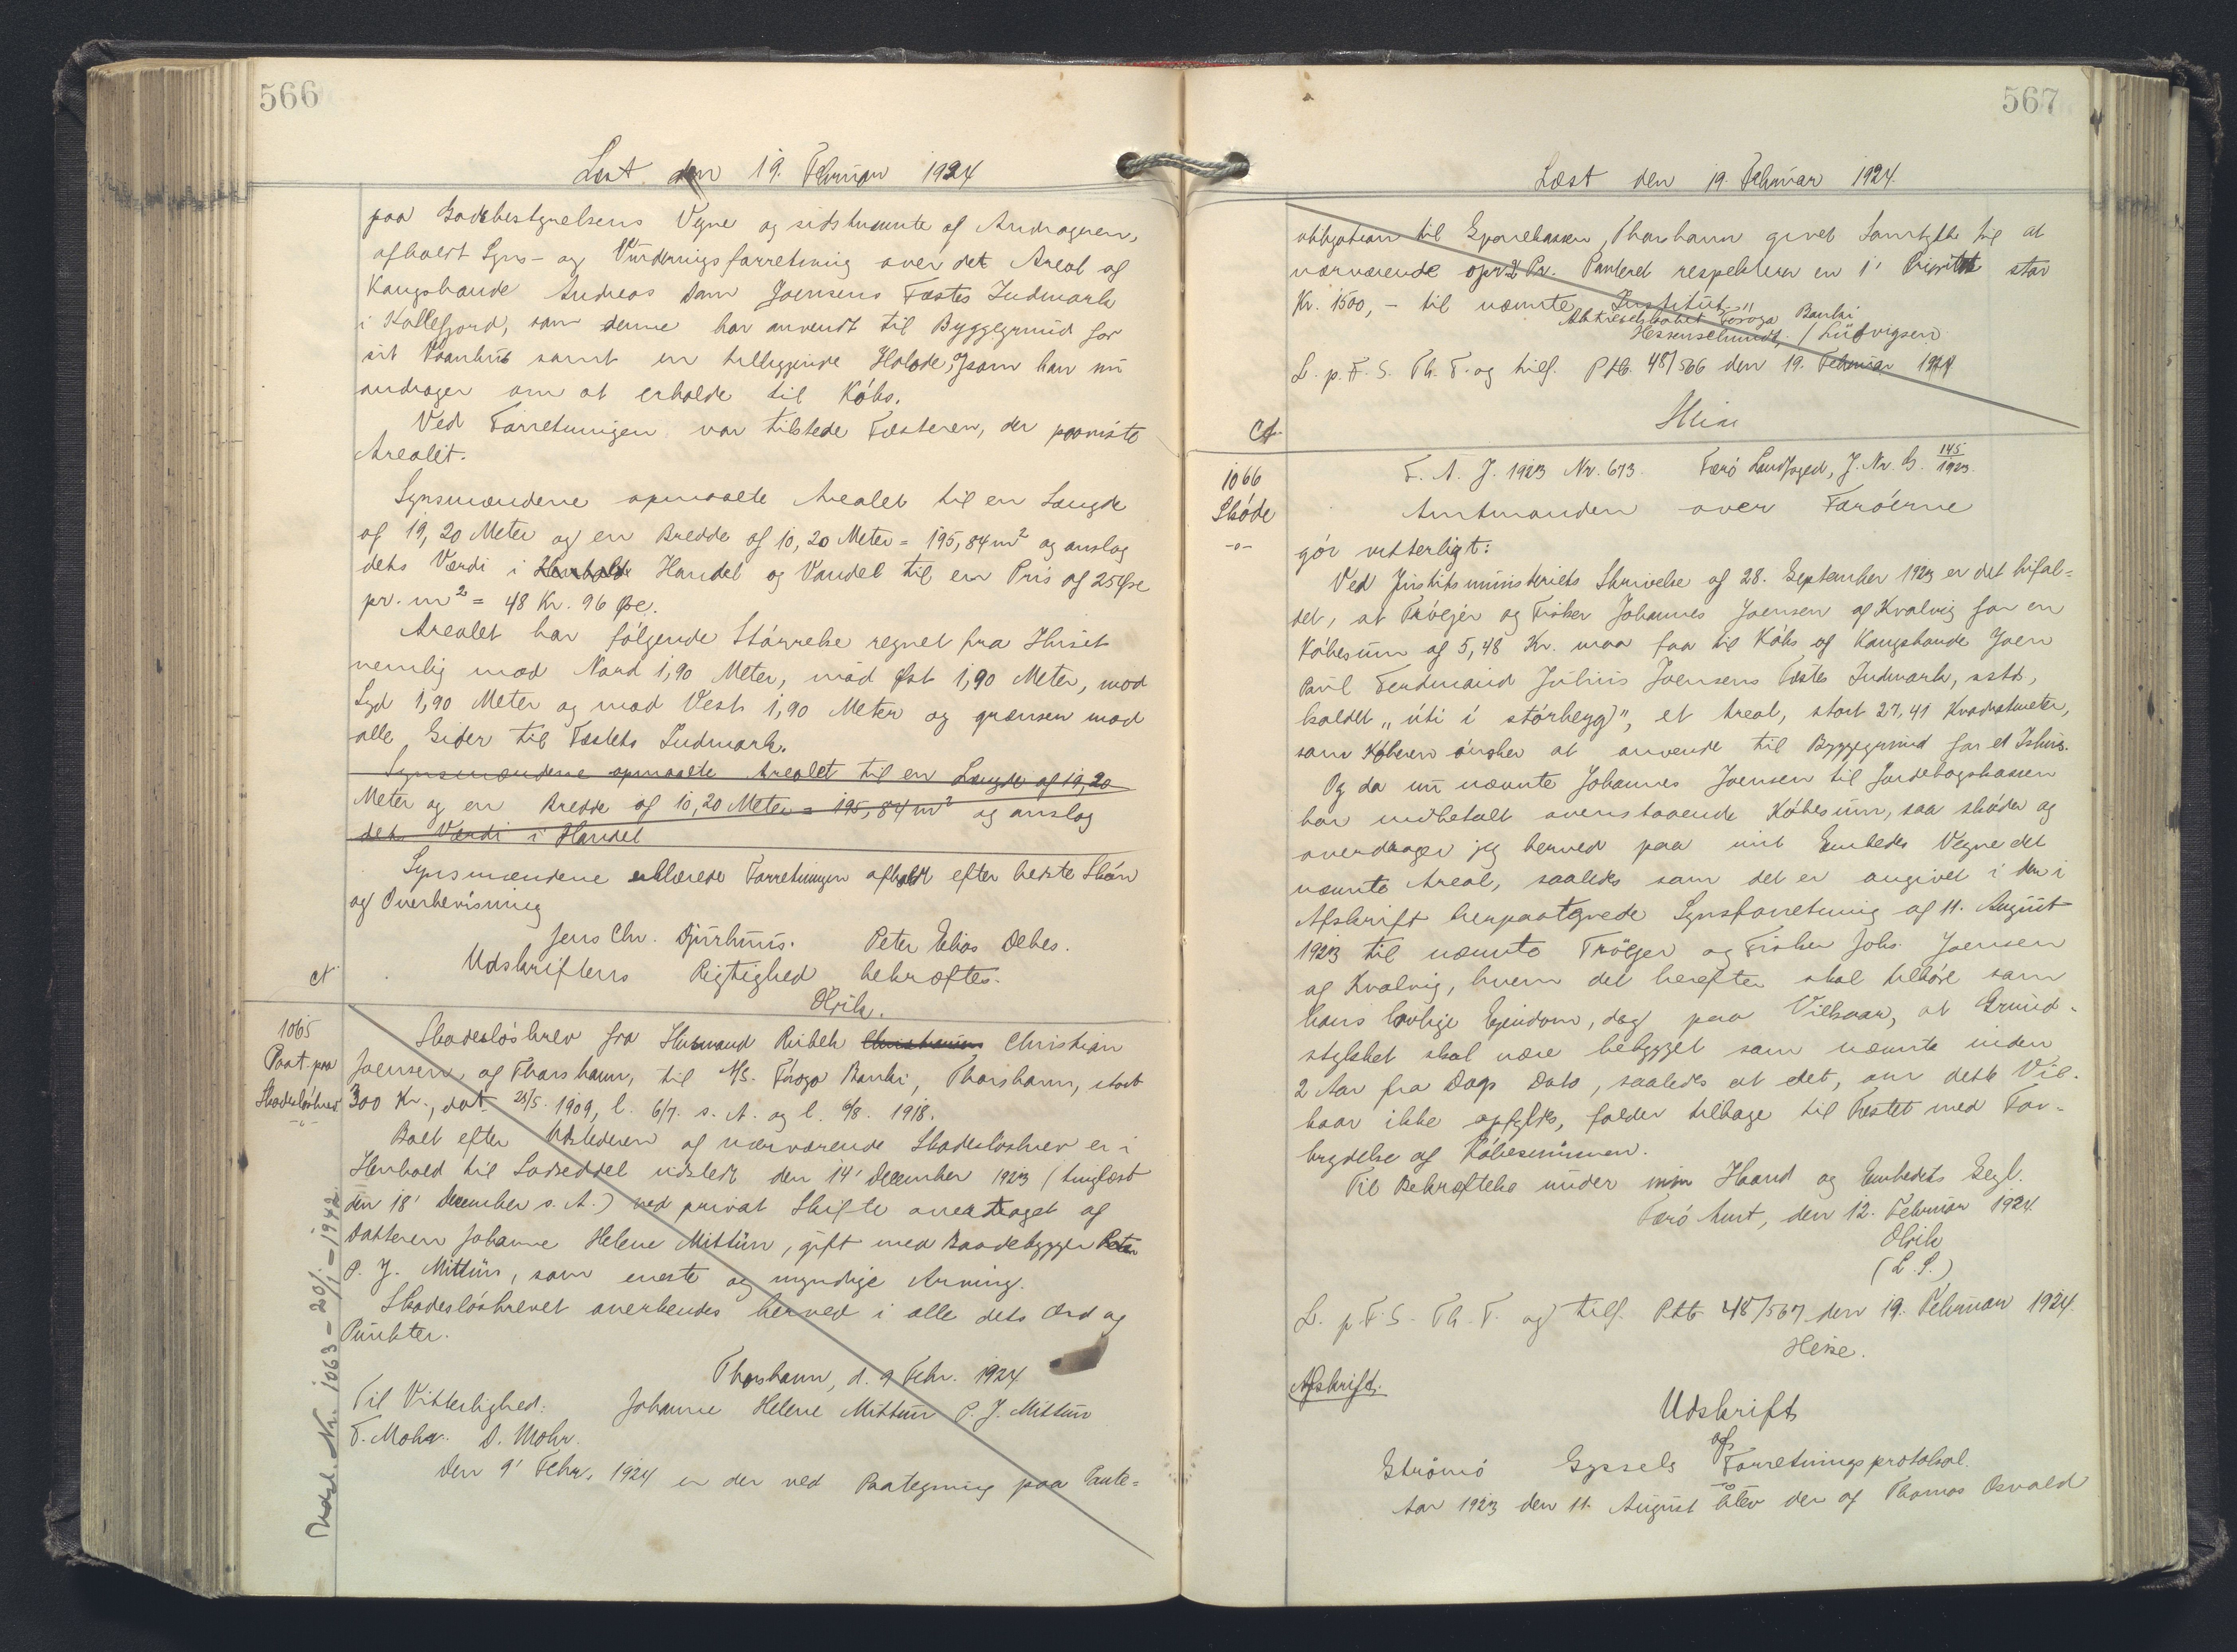 566
Læst den 19. Februar 1924
paa Godsbestyrelsens Vegne og sidstnævnte af Andrageren,
afholdt Syns- og Vurderingsforretning over det Areal af
Kongsbonde Andreas Dam Joensens Fæstes Indmark
i Kollefjord, som denne har anvendt til Byggegrund for
sit Vaanhus samt en tilliggende Hølade, som han nu
andrager om at erholde til Købs.
Ved Forretningen var tilstede Fæsteren, der paaviste
Arealet.
Synsmændene opmaalte Arealet til en Længde
af 19,20 Meter og en Bredde af 10,20 Meter = 195,84 m² og anslog
dets Værdi i Henhold Handel og Vandel til en Pris af 25 Øre
pr. m² = 48 Kr. 96 Øre.
Arealet har følgende Størrelse regnet fra Huset
nemlig mod Nord 1,90 Meter, mod Øst 1,90 Meter, mod
Syd 1,90 Meter og mod Vest 1,90 Meter og grænser mod
alle Sider til Fæstets Indmark.
Synsmændene opmaalte Arealet til en Længde af 19,20
Meter og en Bredde af 10,20 Meter = 195,84 m² og anslog
dets Værdi i Handel
Synsmændene erklærede Forretningen afholdt efter bedste Skøn
og Overbevisning
Jens Chr. Djurhuus. Peter Elias Debes.
Udskriftens Rigtighed bekræftes.
Ct
Olrik.
1065
Paat. paa
Skadesløsbrev
-"-
Skadesløsbrev fra Husmand Rubek Christiansen Christian
Joensen af Thorshavn, til A/S. Føroya Banki, Thorshavn, stort
300 Kr., dat. 25/5. 1909, l. 6/7. s. A. og l. 6/8. 1918.
Boet efter Udstederen af nærværende Skadesløsbrev er i
Henhold til Loseddel udstedt den 14' December 1923 (tinglæst
den 18' December s. A.) ved privat Skifte overtaget af
Datteren Johanne Helene Mittún, gift med Baadebygger Peter
P. J. Mittún, som eneste og myndige Arving.
Skadesløsbrevet anerkendes herved i alle dets Ord og
Punkter.
Thorshavn, d. 9 Febr. 1924
Til Vitterlighed: Johanne Helene Mittún P. J. Mittún
F. Mohr. D. Mohr.
Den 9' Febr. 1924 er der ved Paategning paa Pante=
Udsl. Nr. 1063 - 20/1 - 1942
567
Læst den 19. Februar 1924.
obligation til Sparekassen, Thorshavn givet Samtykke til at
nærværende opr. 2 Pr. Panteret respekterer en 1' Prioritet stor
Kr. 1500,- til nævnte Institut
Aktieselskabet "Føroya Banki
Hessenschmidt / Lützvigsen
L. p. F. S. Th. T. og tilf. Ptb. 48/566 den 19. Februar 1924
Heise
Ct.
1066
Skøde
-o-
F. A. J. 1923 Nr. 673. Færø Landfoged, J. Nr. B. 145/1923.
Amtmanden over Færøerne
gør vitterligt:
Ved Justitsministeriets Skrivelse af 28. September 1923 er det bifal=
det, at Tróvejer og Fisker Johannes Joensen af Kvalvig for en
Købesum af 5,48 Kr. maa faa til Købs af Kongsbonde Joen
Paul Ferdinand Julius Joensens Fæstes Indmark, sstd.,
kaldet "úti í stórheyg", et Areal, stort 27,41 Kvadratmeter,
som Køberen ønsker at anvende til Byggegrund for et Ishus.
Og da nu nævnte Johannes Joensen til Jordebogskassen
har indbetalt ovenstaaende Købesum, saa skøder og
overdrager jeg herved paa mit Embeds Vegne det
nævnte Areal, saaledes som det er angivet i den i
Afskrift herpaategnede Synsforretning af 11. August
1923 til nævnte Tröljer og Fisker Johs. Joensen
af Kvalvig, hvem det herefter skal tilhøre som
hans lovlige Ejendom, dog paa Vilkaar, at Grund=
stykket skal være bebygget som nævnte inden
2 Aar fra Dags Dato, saaledes at det, om dette Vil=
kaar ikke opfyldes, falder tilbage til Fæstet med For=
brydelse af Købesummen.
Til Bekræftelse under min Haand og Embedets Segl.
Færø Amt, den 12. Februar 1924
Olrik
(L. S.)
L. p. F. S. Th. T. og tilf. Ptb. 48/567 den 19. Februar 1924.
Heise.
Afskrift.
Udskrift
af
Strömö Syssels Forretningsprotokol.
Aar 1923 den 11. August blev der af Thomas Osvald